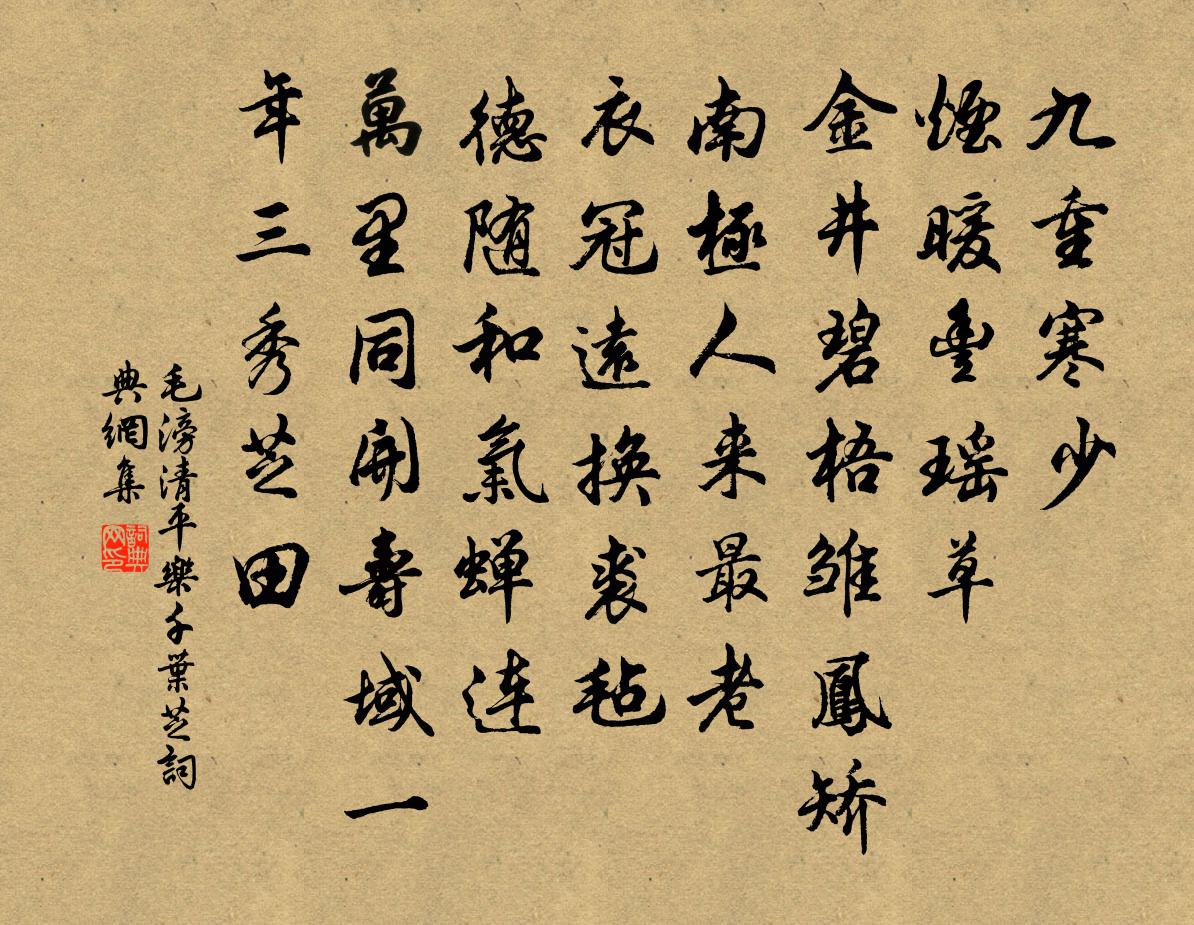 九重寒少
煙暖豊瑶草
金井碧梧雏鳳矫
南極人来最老
衣冠遠換裘毡
德随和氣蝉连
萬里同開壽域一
年三秀芝田
毛滂清平樂千葉芝詞
典網集
詞典网印